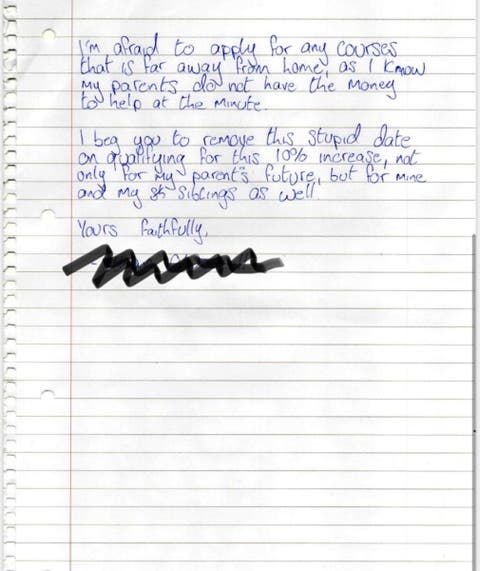 I'm afraid to apply for any courses
that is far away from home, as I know
my parents do not have the money
to help at the minute.
I beg you to remove this stupid date
on qualifying for this 10% increase, not
only for my parent's future, but for mine
and my siblings as well
Yours faithfully,